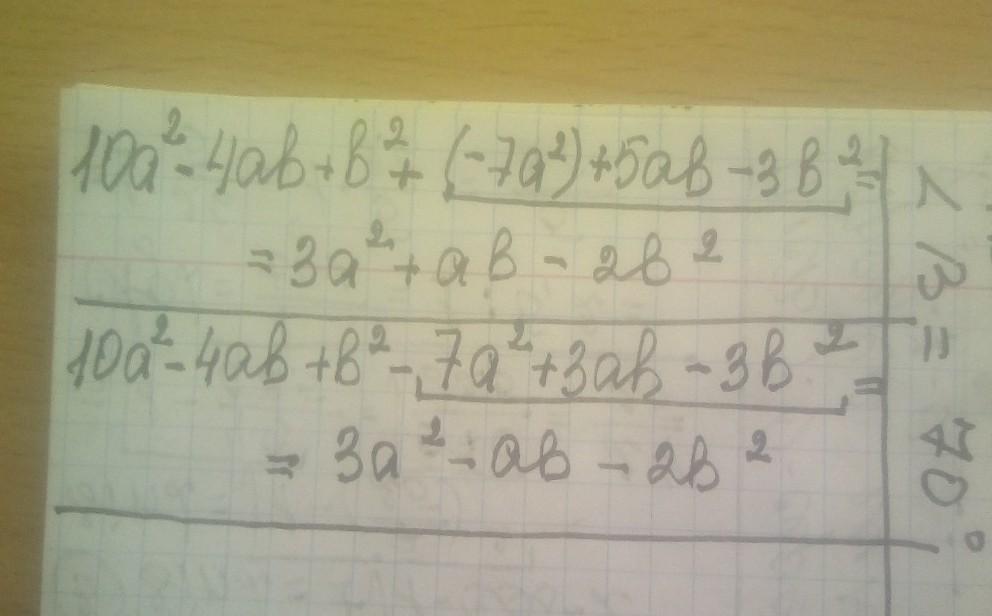 10a² - 4ab + b² + (-7a²) + 5ab - 3b² =
= 3a² + ab - 2b²
10a² - 4ab + b² - 7a² + 3ab - 3b² =
= 3a² - ab - 2b²
∠B = 70°